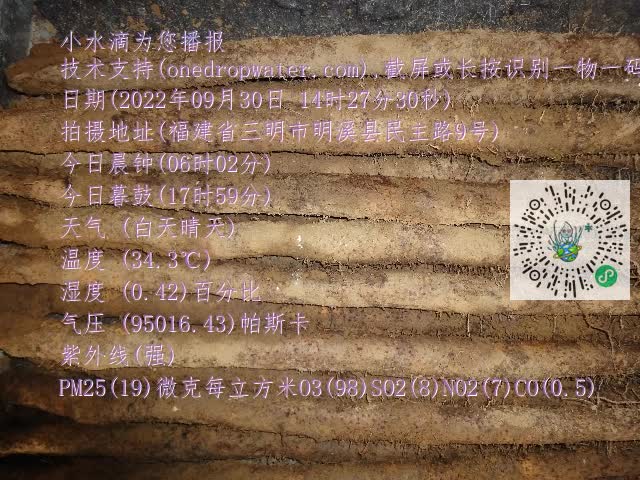 小水滴为您播报
技术支持(onedropwater.com),截屏或长按识别一物一码
日期(2022年09月30日 14时27分30秒)
拍摄地址(福建省三明市明溪县民主路9号)
今日晨钟(06时02分)
今日暮鼓(17时59分)
天气 (白天晴天)
温度 (34.3℃)
湿度 (0.42)百分比
气压 (95016.43)帕斯卡
紫外线(强)
PM25(19)微克每立方米O3(98)SO2(8)NO2(7)CO(0.5)